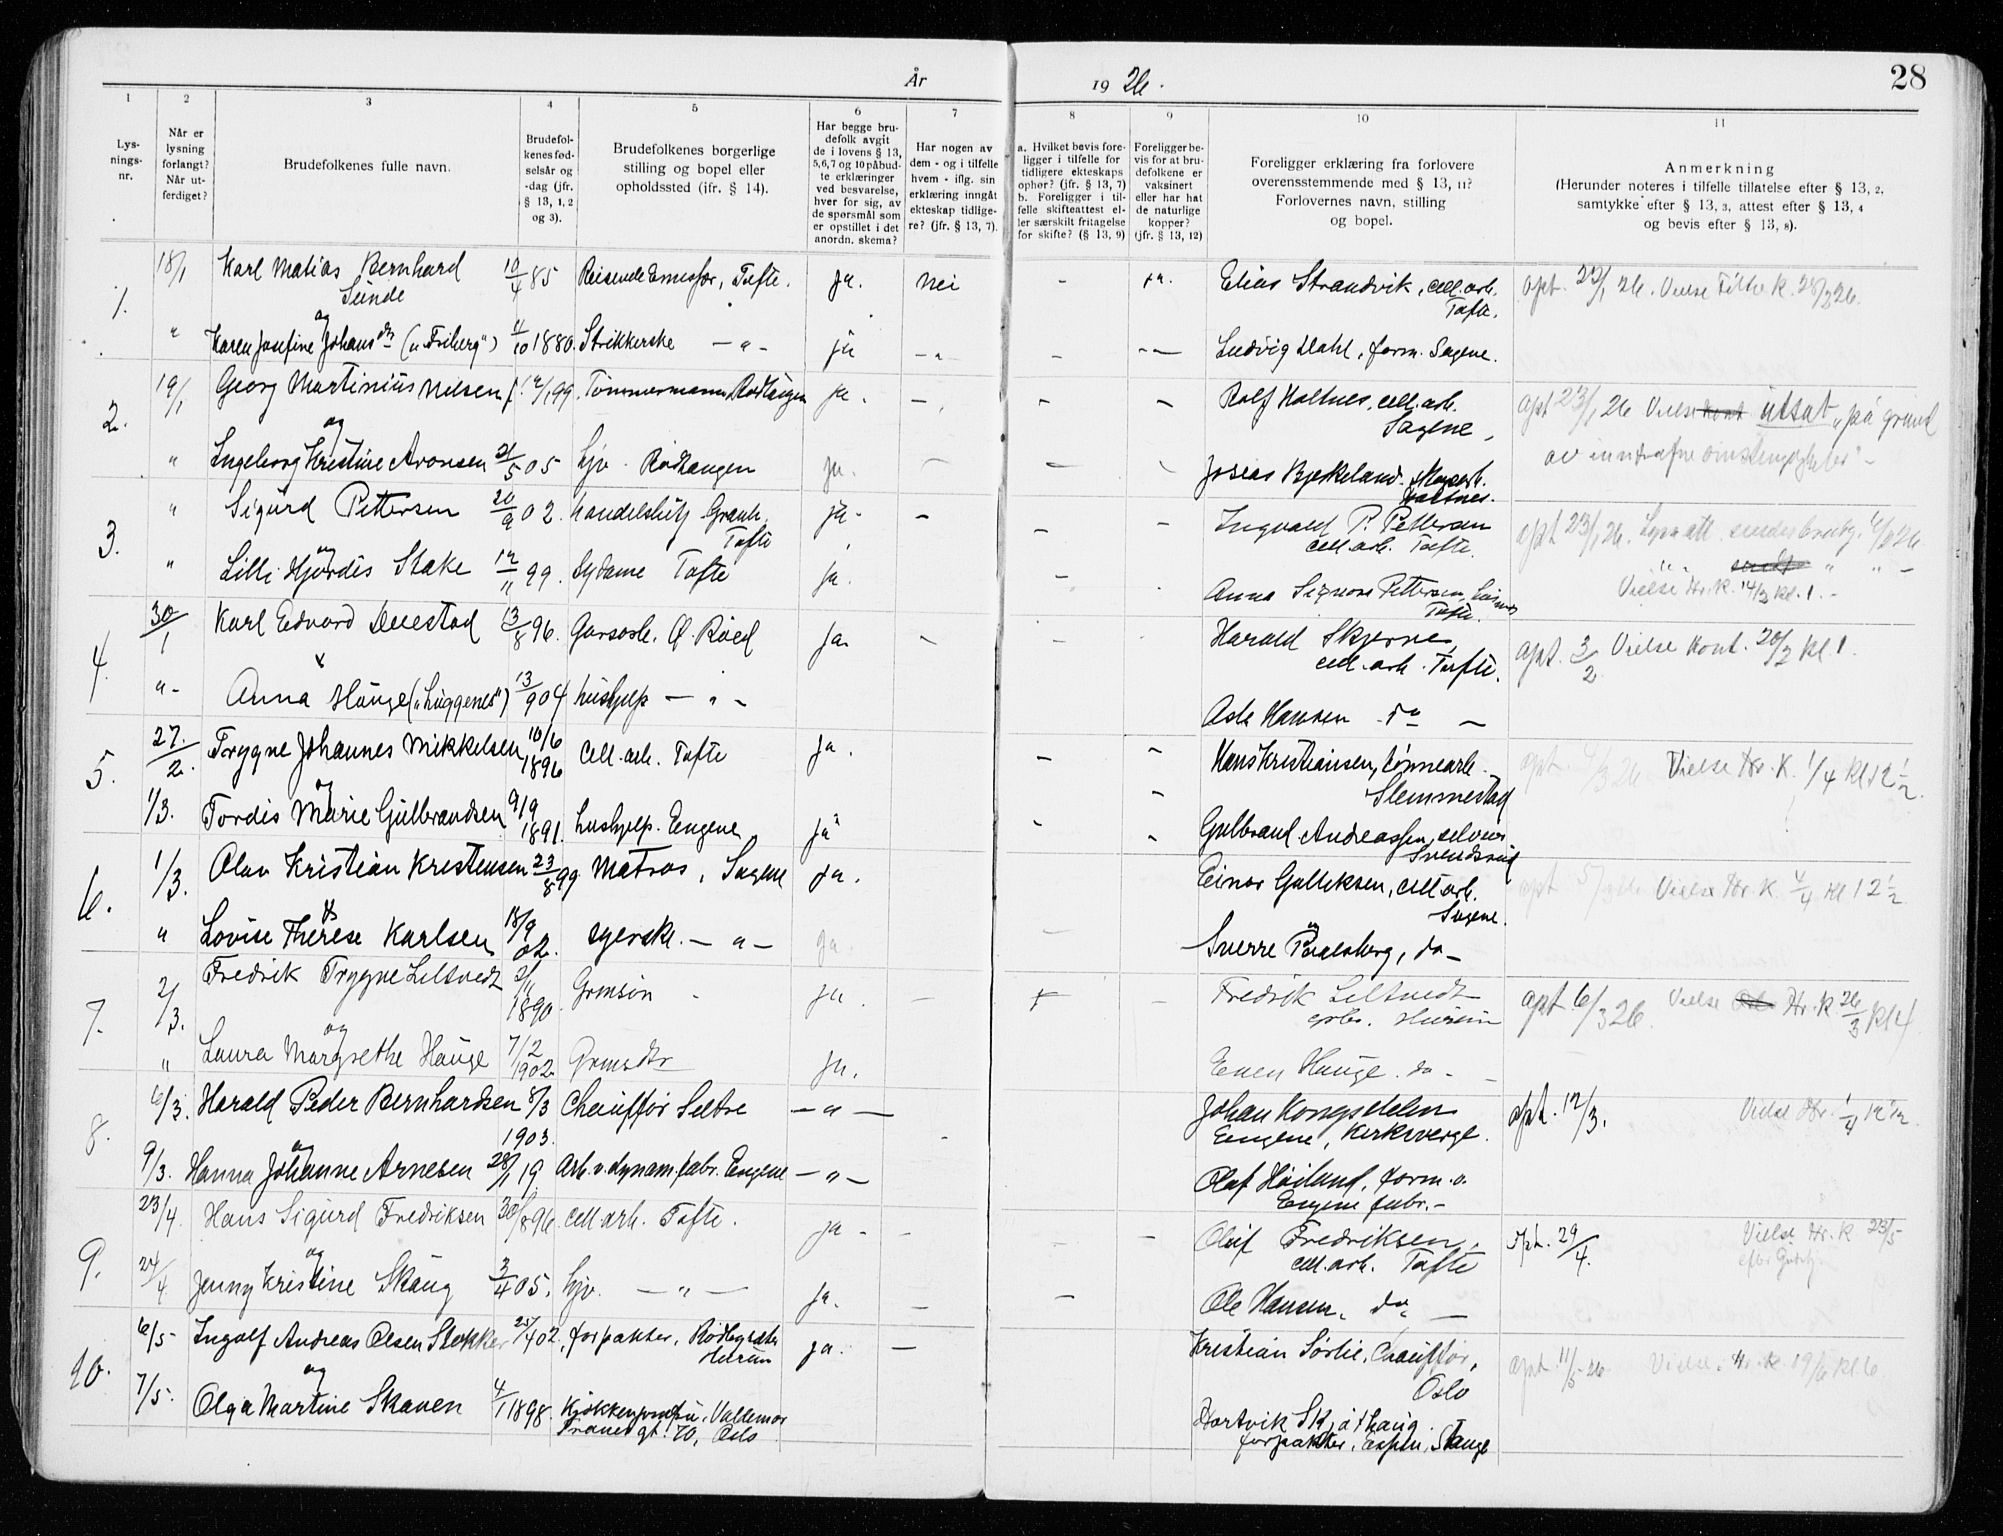 År 1926. 28
1 2 3 4 5 6 7 8 9 10 11
Lys-
nings-
nr.
Når er
lysning
forlangt?
Når ut-
ferdiget?
Brudefolkenes fulle navn.
Brudefol-
kenes fød-
selsår og
-dag (jfr.
§ 13, 1, 2
og 3).
Brudefolkenes borgerlige
stilling og bopel eller
opholdssted (ifr. § 14).
Har begge bru-
defolk avgit
de i lovens § 13,
5, 6, 7 og 10 påbud-
te erklæringer
ved besvarelse,
hver for sig, av
de spørsmål som
er opstillet i det
anordn. skema?
Har nogen av
dem - og i tilfelle
hvem - iflg. sin
erklæring inngåt
ekteskap tidlige-
re? (jfr. § 13, 7).
a. Hvilket bevis fore-
ligger i tilfelle for
tidligere ekteskaps
ophør? (jfr. § 13, 7)
b. Foreligger i til-
felle skifteattest el-
ler særskilt fritagelse
for skifte? (§ 13, 9)
Foreligger be-
vis for at bru-
defolkene er
vaksinert
eller har hat
de naturlige
kopper?
(jfr. § 13, 12)
Foreligger erklæring fra forlovere
overensstemmende med § 13, 11?
Forlovernes navn, stilling
og bopel.
Anmerkning
(Herunder noteres i tilfelle tillatelse efter § 13, 2,
samtykke efter § 13, 3, attest efter § 13, 4
og bevis efter § 13, 8).
1. 18/1 Karl Matias Bernhard 10/4 85 Reisende Tofte. ja. nei - Elias Strandvik, cell.arb. opt. 22/1 26.
Sunde Tofte.
og
" Karen Josefine Johansdtr ("Friberg") 4/10 1880. Strikkerske - " - ja - " - Ludvig Dahl, form. Sagene.
2. 19/1 Georg Martinius Nelsen 99. Tømmermann Rødtangen ja. - Rolf Holtnes, cell.arb. opt 23/1 26 Vielse utsat "på grund
Sagene,
og av inntrufne omstendigheter"
" Ingeborg Kristine Aronsen 21/5 05 hjv. Rødtangen ja. - Josias Bjerkeland.
Holtnes.
3. " Sigurd Pettersen 20/9 02. handelsbetj. ja - Ingvald P. Pettersen opt 23/1 26.
Tofte cell.arb. Tofte.
og
" Lilli Hjørdis Stake 12/11 99. sydame Tofte ja. - Anna Signora Pettersen, Vielse Hr.K. 14/3 kl. 1.
Tofte.
4. 30/1 Karl Edvard 13/8 96. Gårdarb. Ø. Røed ja. - Harald Skjerve, opt. 3/2 Vielse Kont. 20/2 kl 1.
cell.arb. Tofte.
" Anna Hauge ("Huggenes") 13/9 04 hushjelp - " - Hansen do -
5. 27/2. Trygve Johannes Mikkelsen 10/6 1896 cell.arb. Tofte ja. - Hans Kristiansen, tønnearb. Vielse Hr. K. 1/4 kl 12 1/2.
og Slemmestad
1/3. Tordis Marie Gulbrandsen 9/9 1891. hushjelp. Engene ja - Gulbrand Andreassen, selveier
Svendsrud
6. 1/3. Olav Kristian Kristensen 23/8 99 Matros, Sagene ja. Einar Gulliksen, cell arb. opt 5/3 26 Vielse Hr. K. 1/4 kl 12 1/2
og Sagene.
" Lovise Therese Karlsen 18/9 02. syerske. - " - ja. - Sverre do -
7. 2/3. Fredrik Trygve Leltvedt 2/11 1890 Grmsøn ja. - Fredrik Leltvedt opt 6/3 26. Vielse Hr. K. 26/3 kl 4
og grbr. Hurum
" Laura Margrethe Hauge 7/2 1902. Grmsdtr ja. Even Hauge. do -
8. 6/3. Harald Peder Bernhardsen 8/3 1903. Chauffør Sætre - " - Johan Kongsdelen opt. 12/3. Vielse Hr. 1/4 12 1/2
og Engene, Kirkeverge.
9/3. Hanna Johanne Arnesen 28/1 19 Arb. v. dynam.fabr. Engene - " - Olaf Høilund, form. v.
Engene fabr. -
9. 23/4. Hans Sigurd Fredriksen 30/8 96. cell arb. Tofte. ja - - Oluf Fredriksen, opt. 29/4. Vielse Hr. K 23/5
og cell.arb. Tofte efter Gudstj.
24/4 Jenny Kristine Skaug 3/4 05. hjv. - " - ja. - Ole Hansen, do -
10. 6/5 - Ingolf Andreas Olsen Stokker 25/4 02. forpakter, ja. - Kristian Sørlie, Chauffør, opt. 11/5 - 26 Vielse, Hr. K. 19/6 kl 6
og Hurum Oslo
7/5. Olga Martine Skaven 4/1 1898. Kjøkkenjomfru, Valdemar Hartvik Skjathaug.
Tranesgt. 70, Oslo forpakter, Espen, Stange